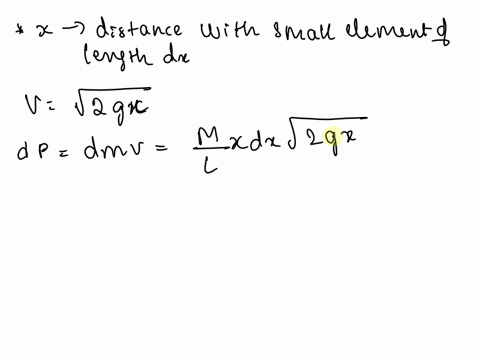 * x → distance with small element of
length dx
V = √2gx
dP = dmv = M/L x dx √2gx